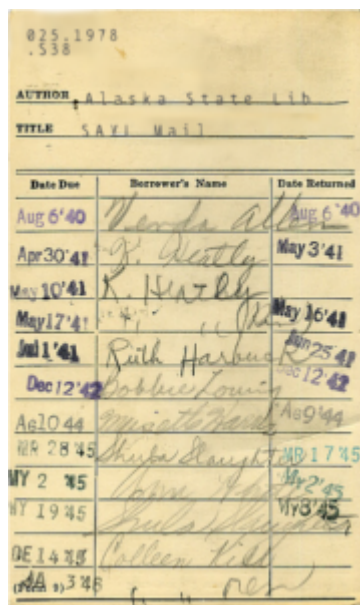 025.1978
.S38
AUTHOR Alaska State Lib
TITLE SAVI Mail
Date Due Borrower's Name Date Returned
Aug 6 '40 Verda Allen Aug 6 '40
Apr 30 '41 J. Heatly May 3 '41
May 10 '41 K. Heatley
May 17 '41 " " May 16 '41
Jul 1 '41 Ruth Harbuck Jun 25 '41
Dec 12 '42 Bobbie Loung Dec 12 '42
Ag 10 44 Ag 9 '44
MR 28 '45 Shula Slaughter MR 17 '45
MY 2 '45 My 2 '45
MY 19 45 Shula Slaughter My 8 '45
DE 14 45 Colleen
JA 3 '46 " "